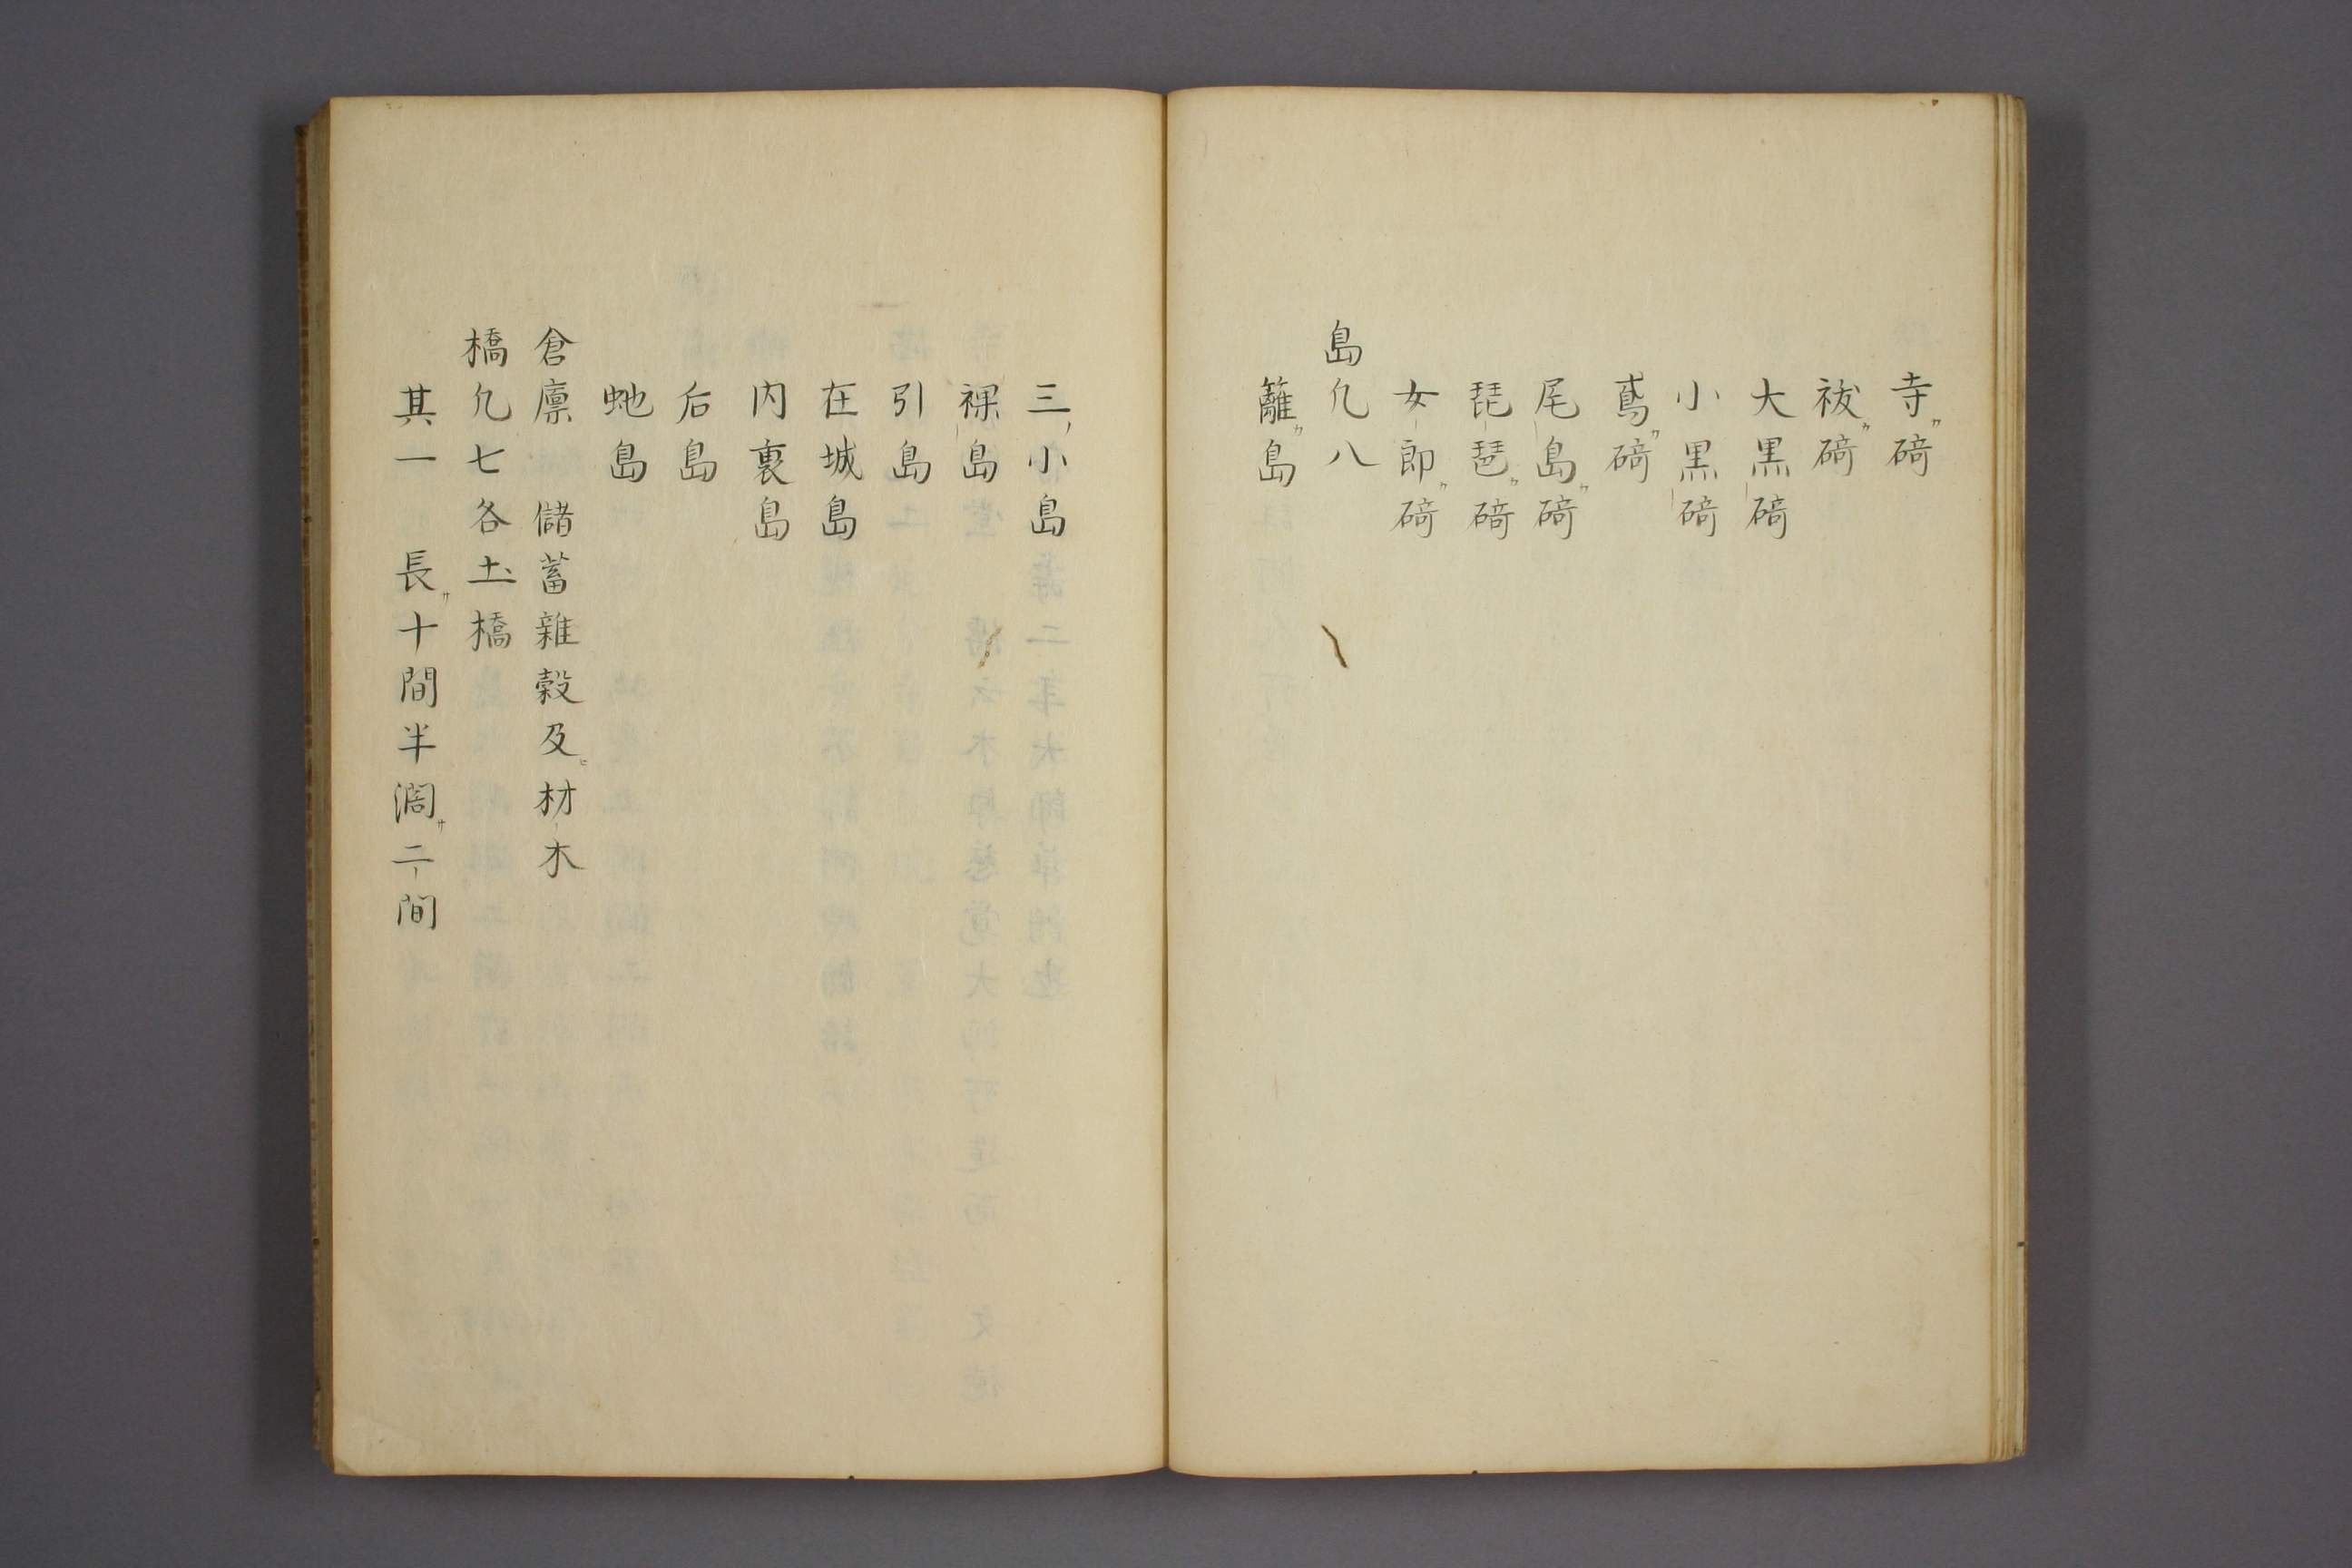 寺碕
祓碕
大黒碕
小黒碕
鳶碕
尾島碕
琵琶碕
女郎碕
島凢八
籬島
三小島
裸島
引島
在城島
内裏島
后島
虵島
倉廪 儲蓄雜穀及材木
橋凢七各土橋
其一 長十間半濶二間